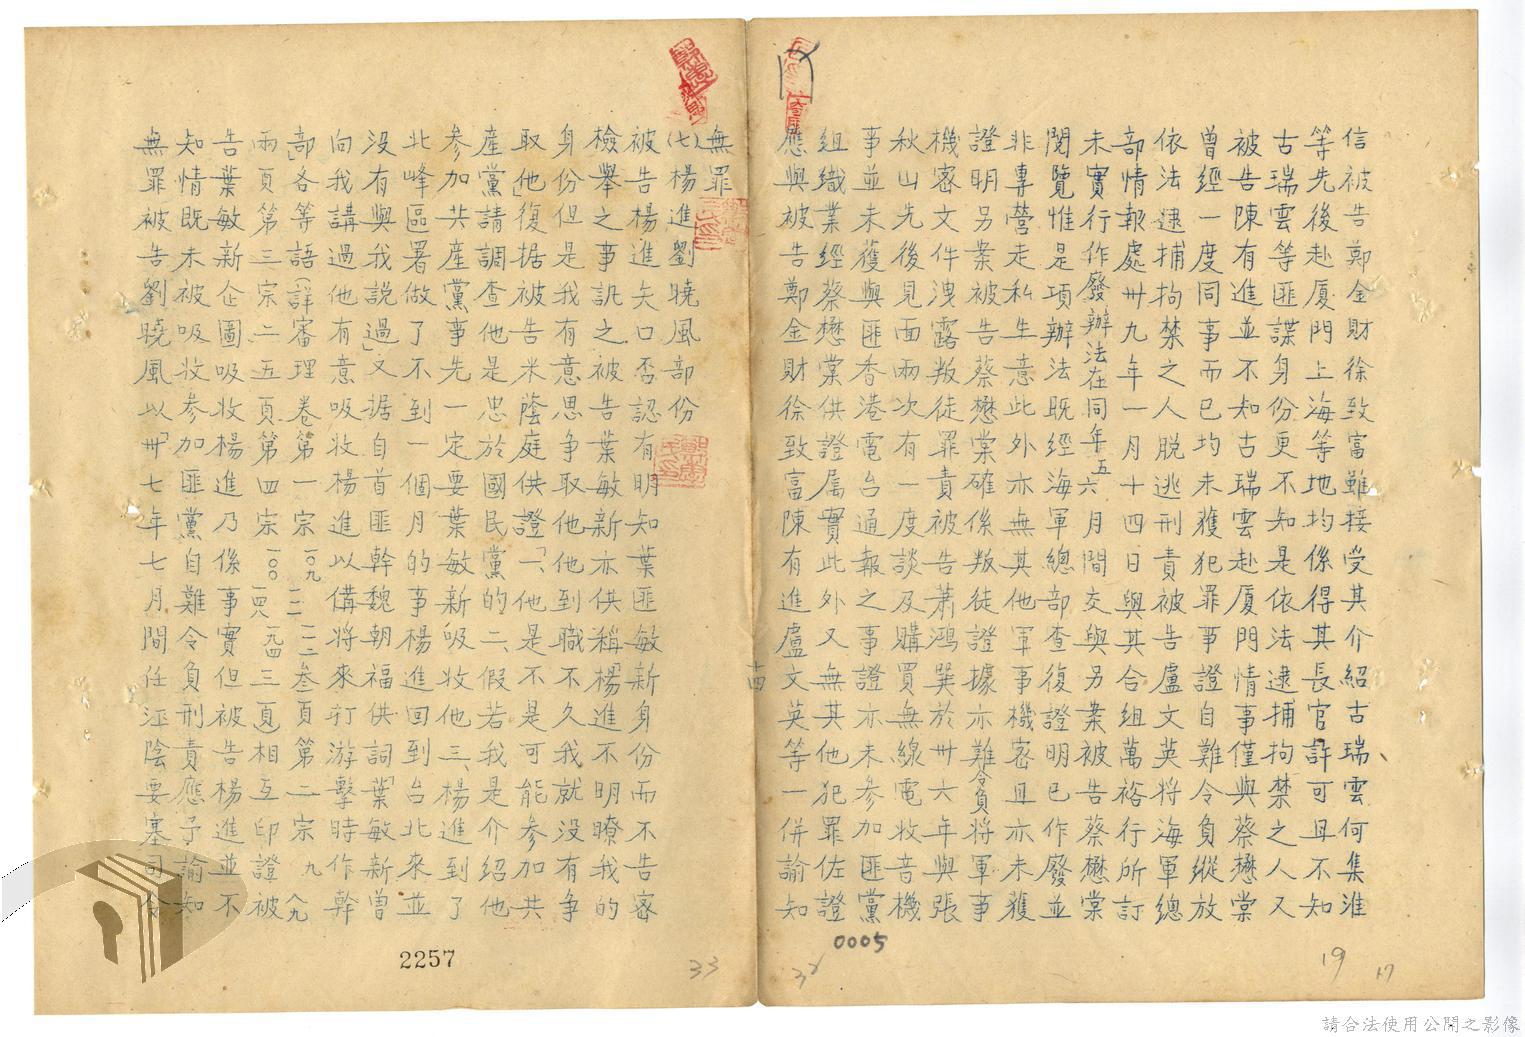 信被告鄭金財徐致富雖接受其介紹古瑞雲何集淮
等先後赴厦門上海等地均係得其長官許可且不知
古瑞雲等匪諜身份更不知是依法逮捕拘禁之人又
被告陳有進並不知古瑞雲赴厦門情事僅與蔡懋棠
曾經一度同事而已均未獲犯罪事證自難令負縱放
依法逮捕拘禁之人脫逃刑責被告盧文英將海軍總
部情報處卅九年一月十四日與其合組萬裕行所訂
未實行作廢辦法在同年五六月間交與另案被告蔡懋棠
閱覽惟是項辦法既經海軍總部查復證明已作廢並
非專營走私生意此外亦無其他軍事機密且亦未獲
證明另案被告蔡懋棠確係叛徒證據亦難令負將軍事
機密文件洩露叛徒罪責被告蕭鴻巽於卅六年與張
秋山先後見面兩次有一度談及購買無線電收音機
事並未獲與匪香港電台通報之事證亦未參加匪黨
組織業經蔡懋棠供證属實此外又無其他犯罪佐證
應與被告鄭金財徐致富陳有進盧文英等一併諭知
無罪
(七)楊進劉曉風部份
被告楊進矢口否認有明知葉匪敏新身份而不告密
檢舉之事訊之被告葉敏新亦供稱「楊進不明瞭我的
身份但是我有意思争取他他到職不久我就没有争
取他」復据被告米蔭庭供證「一、他是不是可能參加共
產黨請調查他是忠於國民黨的二、假若我是介紹他
參加共產黨事先一定要葉敏新吸收他三、楊進到了
北峰區署做了不到一個月的事楊進回到台北來並
没有與我説過」又据自首匪幹魏朝福供詞「葉敏新曾
向我講過他有意吸收楊進以備將來打游擊時作幹
部」各等語(詳審理卷第一宗一○九一二一二叁頁第二宗九八九
兩頁第三宗二五頁第四宗一○○一四八一九四三頁)相互印證被
告葉敏新企圖吸收楊進乃係事實但被告楊進並不
知情既未被吸收參加匪黨自難令負刑責應予諭知
無罪被告劉曉風以「卅七年七月間任江陰要塞司令
十四
0005
19
17
33
2257
請合法使用公開之影像